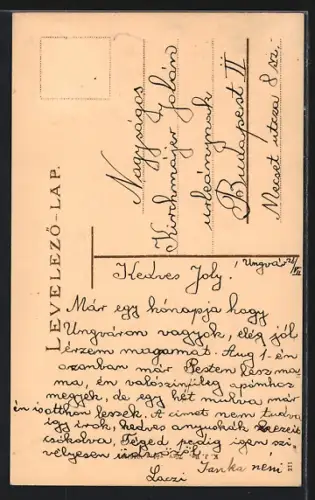 LEVELEZŐ-LAP.
Nagyságos
Kirchmájer Jolán
urleánynak
Budapest II
Mecset utcza 8 sz.
Ungvár
Kedves Joly!
Már egy hónapja hogy
Ungváron vagyok, elég jól
érzem magamat. Aug 1-én
azonban már Pesten lesz ma
ma, én valószinüleg apámhoz
megyek, de egy hét mulva már
én is otthon leszek. A cimet nem tudva
igy irok, kedves anyuókák kezeit
csókolva, Téged pedig igen szi
vélyesen üdvözöl
Laczi
Janka néni